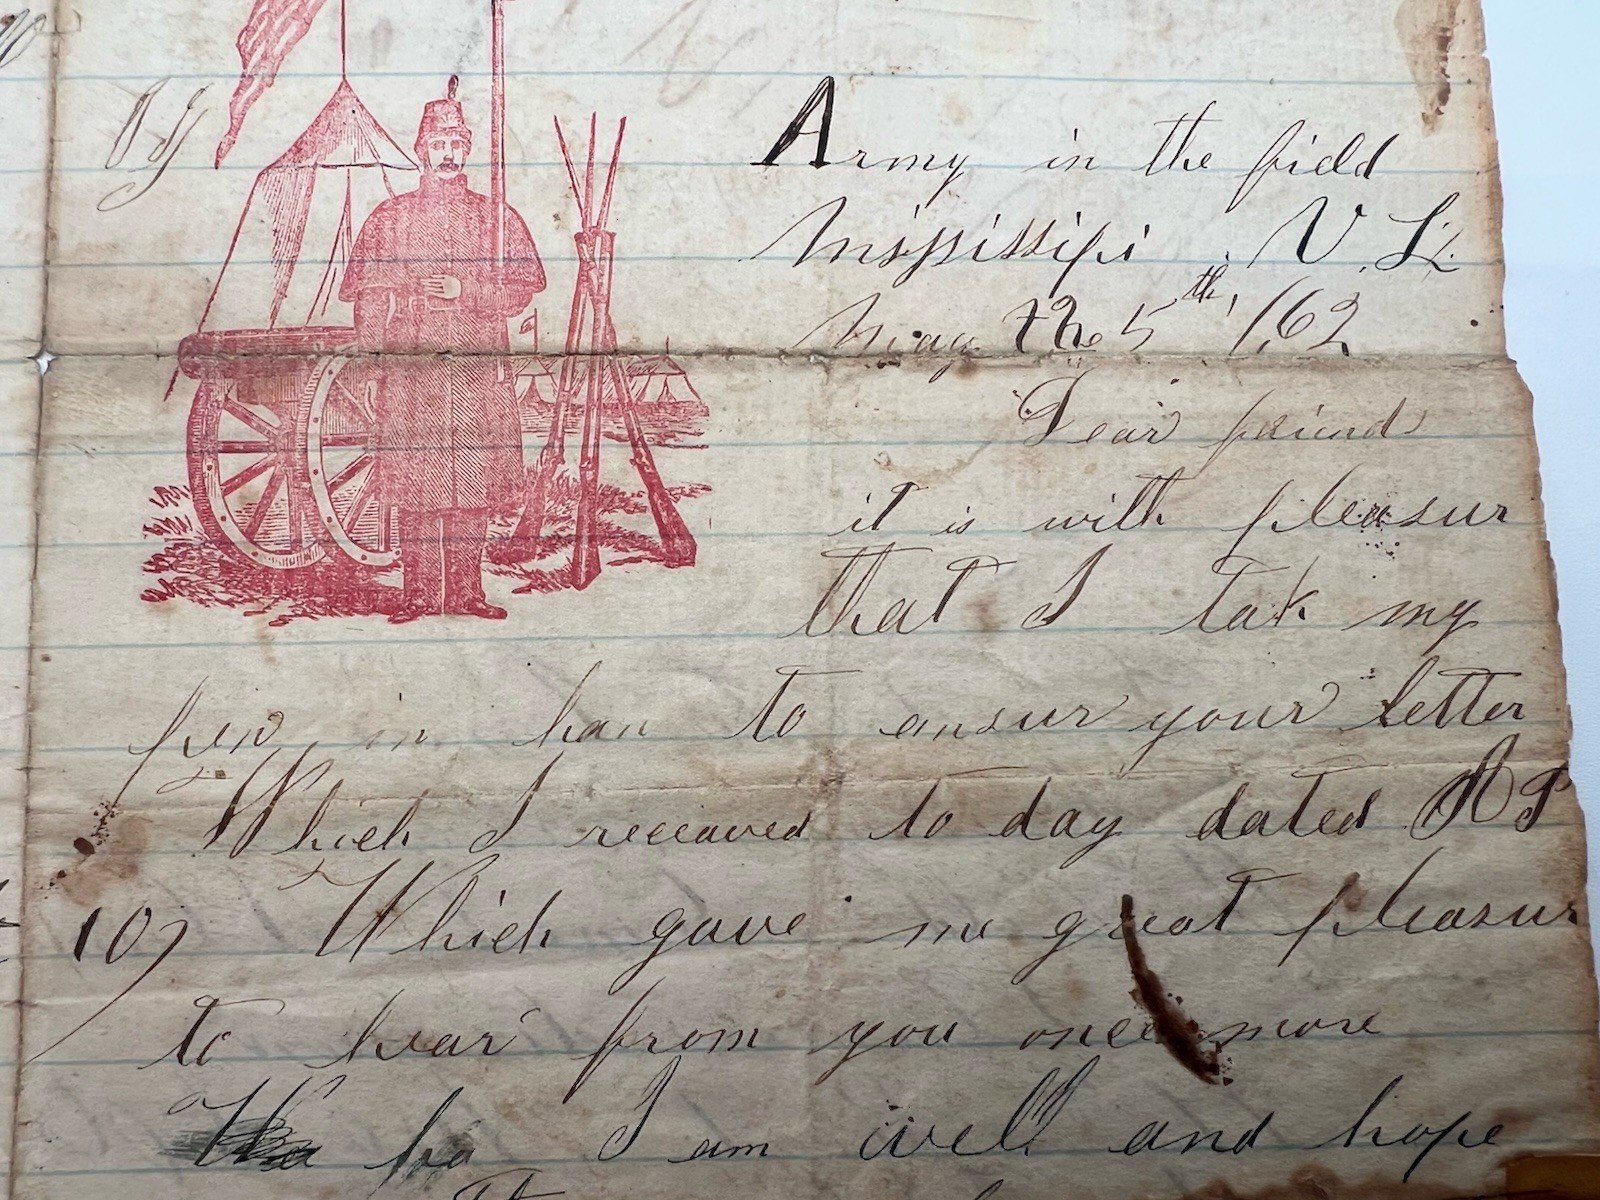 Army in the field
Mississipi V. St.
May the 5th, 1,62
Dear friend
it is with pleasur
that I tak my
pen in han to ansur your letter
Which I receaved to day dated AP
10, Which gave me great pleasur
to hear from you once more
I am well and hope